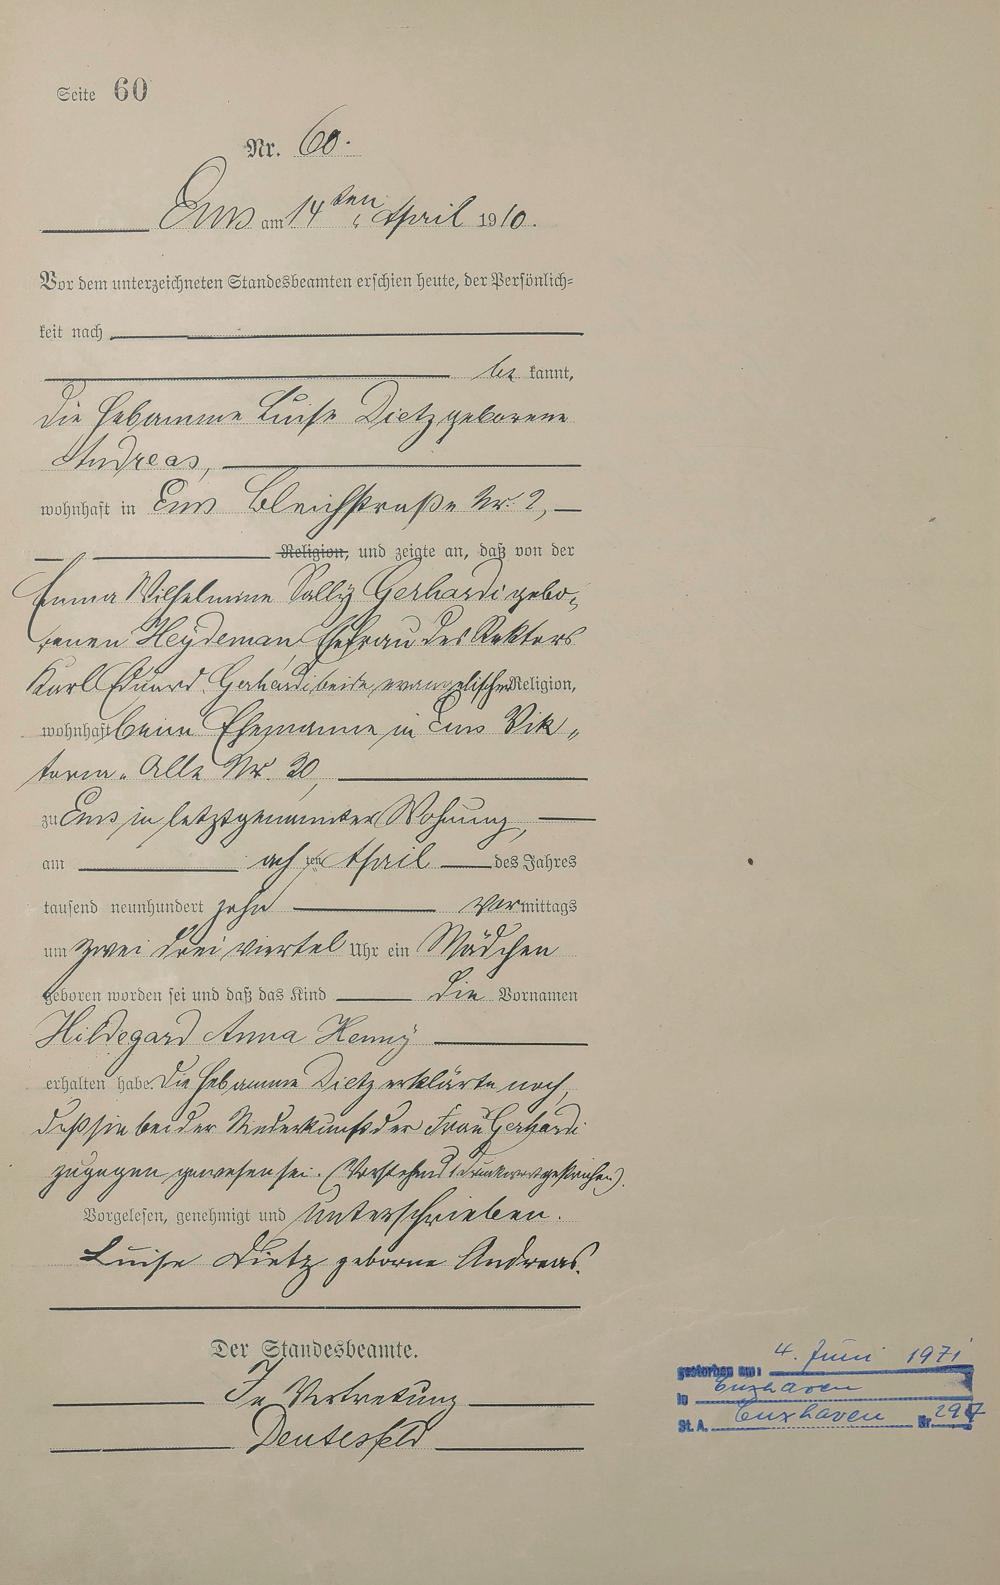 Seite 60
Nr. 60.
Ems am 14ten April 1910.
Vor dem unterzeichneten Standesbeamten erschien heute, der Persönlich-
keit nach
be kannt,
die Hebamme Luise Dietz geborene
Andreas,
wohnhaft in Ems Bleichstraße Nr. 2,
Religion, und zeigte an, daß von der
Emma Wilhelmine Sally Gerhardi gebo-
renen Heydeman, Ehefrau des Rektors
Karl Eduard Gerhardi, beide, evangelischer Religion,
wohnhaft beim Ehemanne in Ems Vik-
toria-Allee Nr. 20,
zu Ems in letztgenannter Wohnung,
am achten April des Jahres
tausend neunhundert zehn Vormittags
um zwei drei viertel Uhr ein Mädchen
geboren worden sei und daß das Kind die Vornamen
Hildegard Anna Henny
erhalten habe. Die Hebamme Dietz erklärte noch,
daß sie bei der Niederkunft der Frau Gerhardi
zugegen gewesen sei. (Vorstehend 1 Druckwort gestrichen).
Vorgelesen, genehmigt und unterschrieben.
Luise Dietz geborne Andreas.
Der Standesbeamte.
In Vertretung
gestorben am: 4. Juni 1971
in Cuxhaven
St. A. Cuxhaven Nr. 297